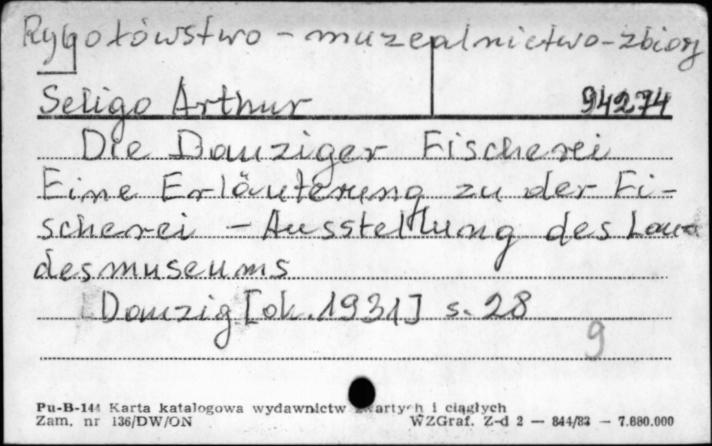 Rybołówstwo - muzealnictwo - zbiory
Seligo Arthur 94274
Die Danziger Fischerei
Eine Erläuterung zu der Fi-
scherei - Ausstellung des Lan-
desmuseums
Danzig [ok. 1931] s. 28
9
Pu-B-144 Karta katalogowa wydawnictw zwartych i ciągłych
Zam. nr 136/DW/ON WZGraf. Z-d 2 — 844/83 — 7.880.000